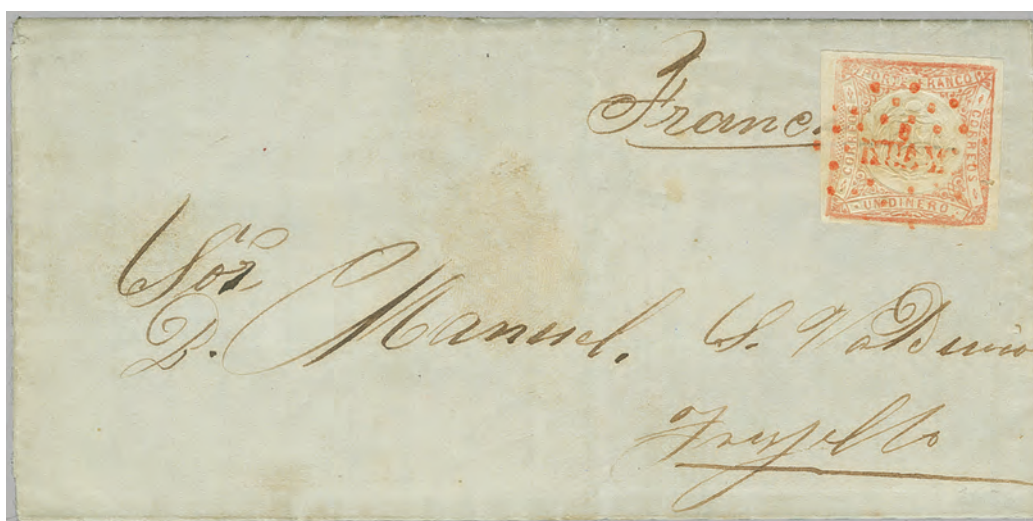 Franc
PORTE FRANCO
CORREOS
CORREOS
UN DINERO
Sor
D. Manuel. S.
Truxillo